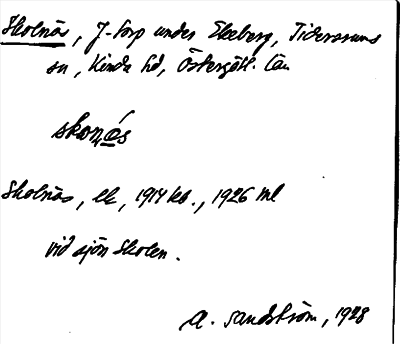 Skolnäs, J-torp under Ekeberg, Tidersrums
sn, Kinda hd, Östergötl. län
skonǻs
Skolnäs, ek, 1914 kb., 1926 ml
vid sjön Skolen.
A. Sandström, 1928